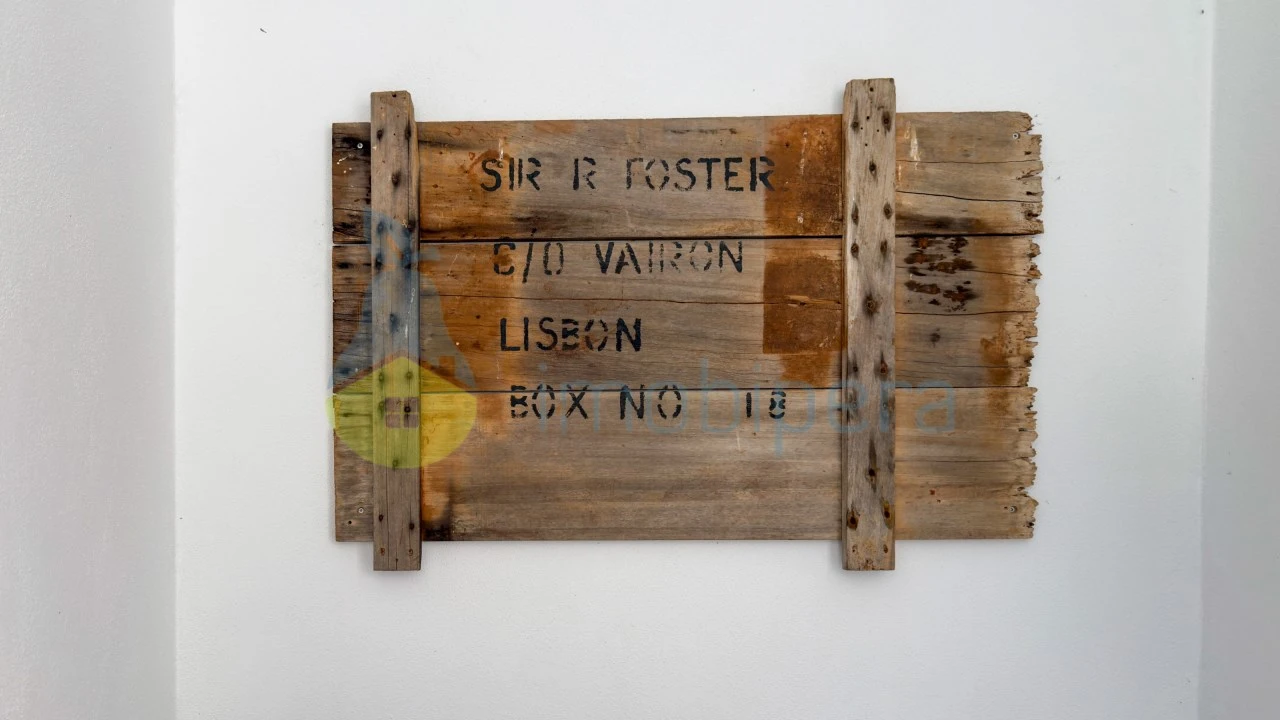 SIR R FOSTER
C/O VAIRON
LISBON
BOX NO 18
imobipera